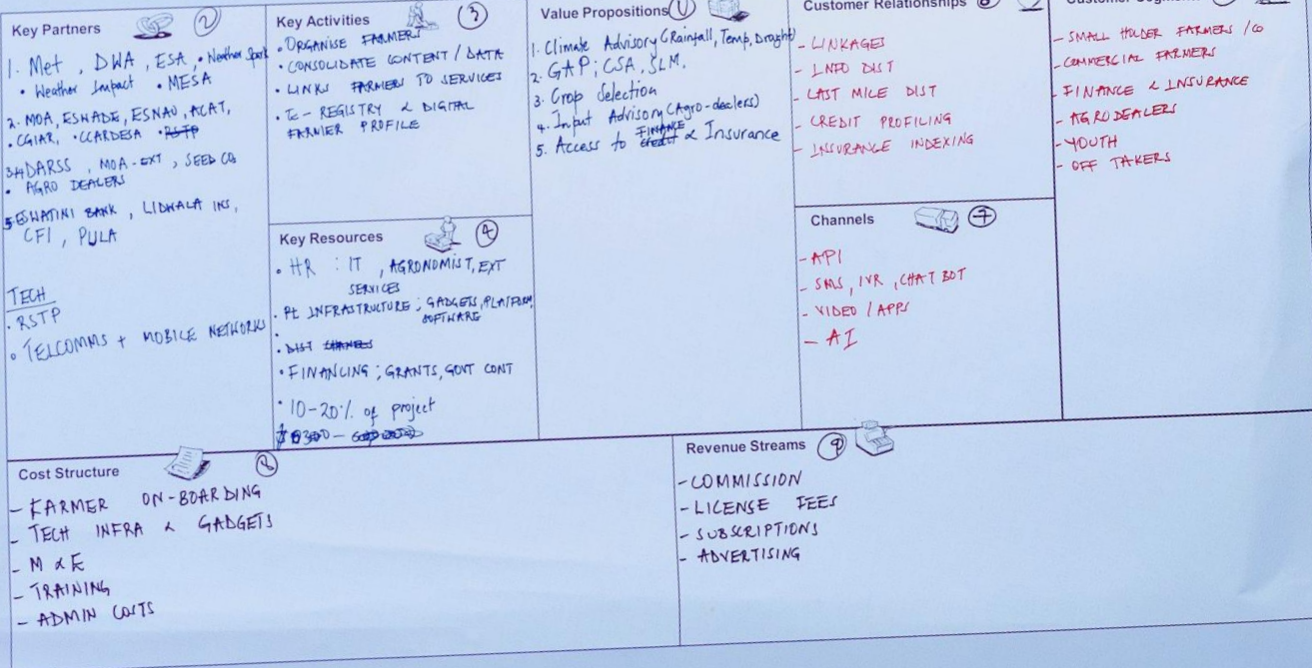 Key Partners
2
1. Met, DWA, ESA, • Neither Spark
• Weather Impact • MESA
2. MOA, ESWADE, ESNAU, ACAT,
• CGIAR, • CCARDESA • RSTP
DARSS, MOA-EXT, SEED CO
• AGRO DEALERS
5 ESWATINI BANK, LIDWALA INS,
CFI, PULA
TECH
• RSTP
• TELCOMMS + MOBILE NETWORKS
Key Activities
3
• ORGANISE FARMERS
• CONSOLIDATE CONTENT / DATA
• LINKS FARMERS TO SERVICES
• Tc - REGISTRY & DIGITAL
FARMER PROFILE
Key Resources
4
• HR : IT, AGRONOMIST, EXT
SERVICES
INFRASTRUCTURE ; GADGETS, PLATFORM,
SOFTWARE
• DIST CHANELS
• FINANCING ; GRANTS, GOVT CONT
• 10-20% of project
Value Propositions
1. Climate Advisory (Rainfall, Temp, Droght)
2. GAP; CSA, SLM.
3. Crop Selection
4. Input Advisory (Agro-dealers)
FINANCE
5. Access to credit & Insurance
Customer Relationships
- LINKAGES
- INFO DIST
- LAST MILE DIST
- CREDIT PROFILING
- INSURANCE INDEXING
Channels
7
- API
- SMS, IVR, CHAT BOT
- VIDEO / APPS
- AI
- SMALL HOLDER FARMERS / CO
- COMMERCIAL FARMERS
- FINANCE & INSURANCE
- AGRODEALERS
- YOUTH
- OFF TAKERS
Cost Structure
8
- FARMER ON-BOARDING
- TECH INFRA & GADGETS
- M & E
- TRAINING
- ADMIN COSTS
Revenue Streams
9
- COMMISSION
- LICENSE FEES
- SUBSCRIPTIONS
- ADVERTISING